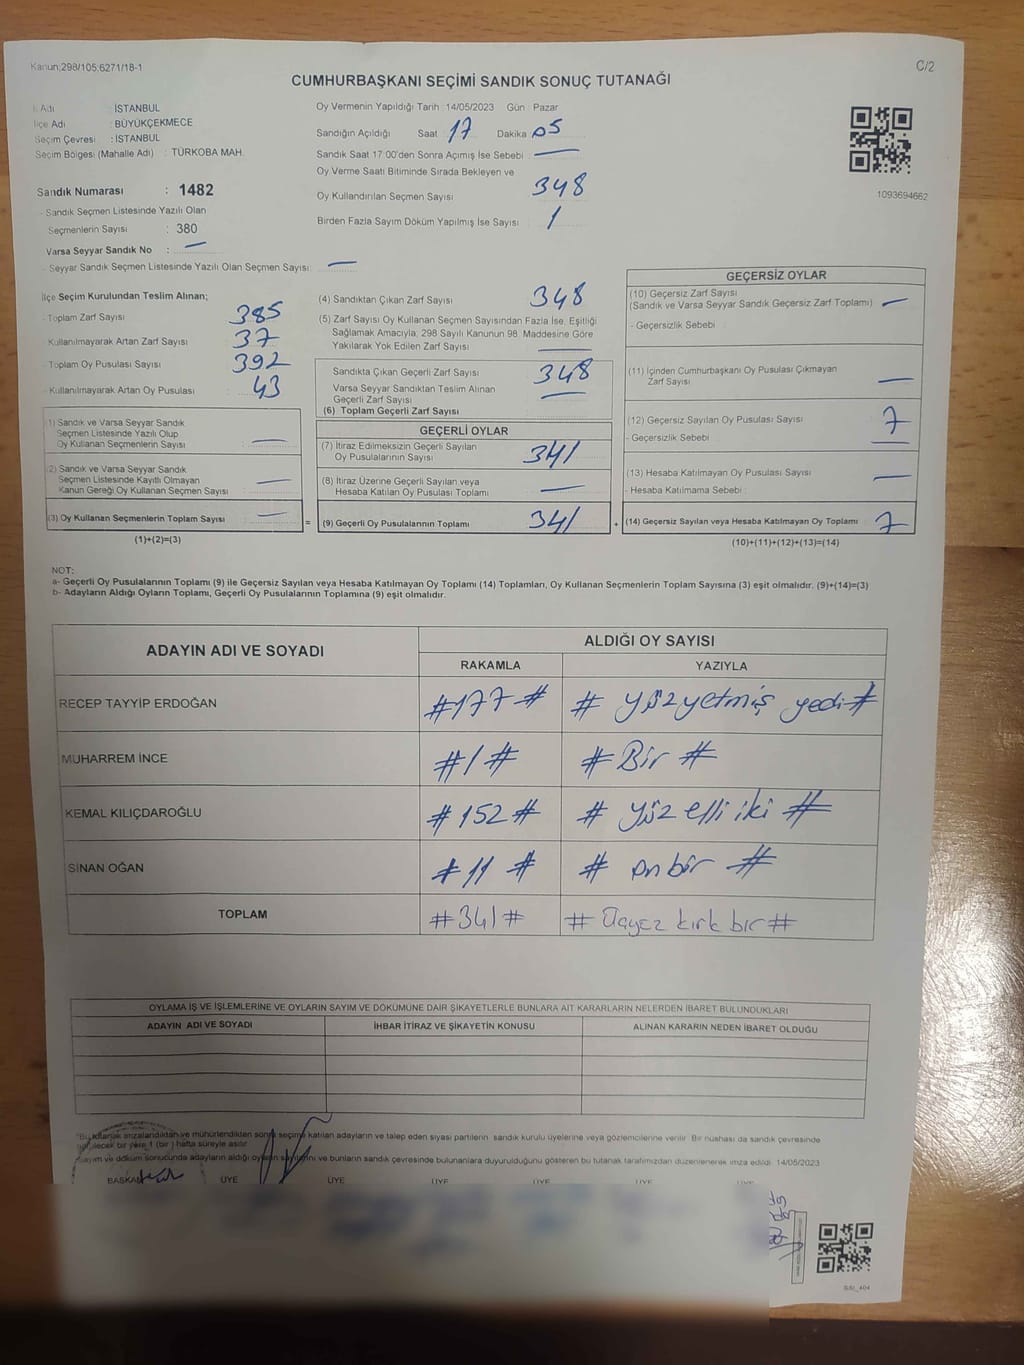 Kanun;298/105;6271/18-1
C/2
CUMHURBAŞKANI SEÇİMİ SANDIK SONUÇ TUTANAĞI
İl Adı : İSTANBUL
İlçe Adı : BÜYÜKÇEKMECE
Seçim Çevresi : İSTANBUL
Seçim Bölgesi (Mahalle Adı) : TÜRKOBA MAH.
Sandık Numarası : 1482
- Sandık Seçmen Listesinde Yazılı Olan
Seçmenlerin Sayısı : 380
Varsa Seyyar Sandık No : —
- Seyyar Sandık Seçmen Listesinde Yazılı Olan Seçmen Sayısı: —
Oy Vermenin Yapıldığı Tarih : 14/05/2023 Gün : Pazar
Sandığın Açıldığı Saat : 17 Dakika : 05
Sandık Saat 17:00'den Sonra Açımış İse Sebebi : —
Oy Verme Saati Bitiminde Sırada Bekleyen ve
Oy Kullandırılan Seçmen Sayısı : 348
Birden Fazla Sayım Döküm Yapılmış İse Sayısı : 1
1093694662
İlçe Seçim Kurulundan Teslim Alınan;
- Toplam Zarf Sayısı : 385
- Kullanılmayarak Artan Zarf Sayısı : 37
- Toplam Oy Pusulası Sayısı : 392
- Kullanılmayarak Artan Oy Pusulası : 43
(1) Sandık ve Varsa Seyyar Sandık
Seçmen Listesinde Yazılı Olup
Oy Kullanan Seçmenlerin Sayısı : —
(2) Sandık ve Varsa Seyyar Sandık
Seçmen Listesinde Kayıtlı Olmayan
Kanun Gereği Oy Kullanan Seçmen Sayısı : —
(3) Oy Kullanan Seçmenlerin Toplam Sayısı : —
(1)+(2)=(3)
(4) Sandıktan Çıkan Zarf Sayısı : 348
(5) Zarf Sayısı Oy Kullanan Seçmen Sayısından Fazla İse, Eşitliği
Sağlamak Amacıyla; 298 Sayılı Kanunun 98. Maddesine Göre
Yakılarak Yok Edilen Zarf Sayısı : —
Sandıkta Çıkan Geçerli Zarf Sayısı : 348
Varsa Seyyar Sandıktan Teslim Alınan
Geçerli Zarf Sayısı : —
(6) Toplam Geçerli Zarf Sayısı :
GEÇERLİ OYLAR
(7) İtiraz Edilmeksizin Geçerli Sayılan
Oy Pusulalarının Sayısı : 341
(8) İtiraz Üzerine Geçerli Sayılan veya
Hesaba Katılan Oy Pusulası Toplamı : —
= (9) Geçerli Oy Pusulalarının Toplamı : 341 +
GEÇERSİZ OYLAR
(10) Geçersiz Zarf Sayısı
(Sandık ve Varsa Seyyar Sandık Geçersiz Zarf Toplamı) : —
- Geçersizlik Sebebi :
(11) İçinden Cumhurbaşkanı Oy Pusulası Çıkmayan
Zarf Sayısı : —
(12) Geçersiz Sayılan Oy Pusulası Sayısı : 7
- Geçersizlik Sebebi : —
(13) Hesaba Katılmayan Oy Pusulası Sayısı : —
- Hesaba Katılmama Sebebi :
(14) Geçersiz Sayılan veya Hesaba Katılmayan Oy Toplamı : 7
(10)+(11)+(12)+(13)=(14)
NOT:
a- Geçerli Oy Pusulalarının Toplamı (9) ile Geçersiz Sayılan veya Hesaba Katılmayan Oy Toplamı (14) Toplamları, Oy Kullanan Seçmenlerin Toplam Sayısına (3) eşit olmalıdır. (9)+(14)=(3)
b- Adayların Aldığı Oyların Toplamı, Geçerli Oy Pusulalarının Toplamına (9) eşit olmalıdır.
ADAYIN ADI VE SOYADI
ALDIĞI OY SAYISI
RAKAMLA YAZIYLA
RECEP TAYYİP ERDOĞAN #177# # Yüzyetmiş yedi #
MUHARREM İNCE #1# # Bir #
KEMAL KILIÇDAROĞLU #152# # Yüz elli iki #
SİNAN OĞAN #11# # On bir #
TOPLAM #341# # Üçyüz kırk bir #
OYLAMA İŞ VE İŞLEMLERİNE VE OYLARIN SAYIM VE DÖKÜMÜNE DAİR ŞİKAYETLERLE BUNLARA AİT KARARLARIN NELERDEN İBARET BULUNDUKLARI
ADAYIN ADI VE SOYADI İHBAR İTİRAZ VE ŞİKAYETİN KONUSU ALINAN KARARIN NEDEN İBARET OLDUĞU
"Bu tutanak imzalandıktan ve mühürlendikten sonra seçime katılan adayların ve talep eden siyasi partilerin sandık kurulu üyelerine veya gözlemcilerine verilir. Bir nüshası da sandık çevresinde
görülecek bir yere 1 (bir) hafta süreyle asılır.
Sayım ve döküm sonucunda adayların aldığı oyların sayılarını ve bunların sandık çevresinde bulunanlara duyurulduğunu gösteren bu tutanak tarafımızdan düzenlenerek imza edildi. 14/05/2023
BAŞKAN ÜYE ÜYE ÜYE ÜYE ÜYE
SSI_404